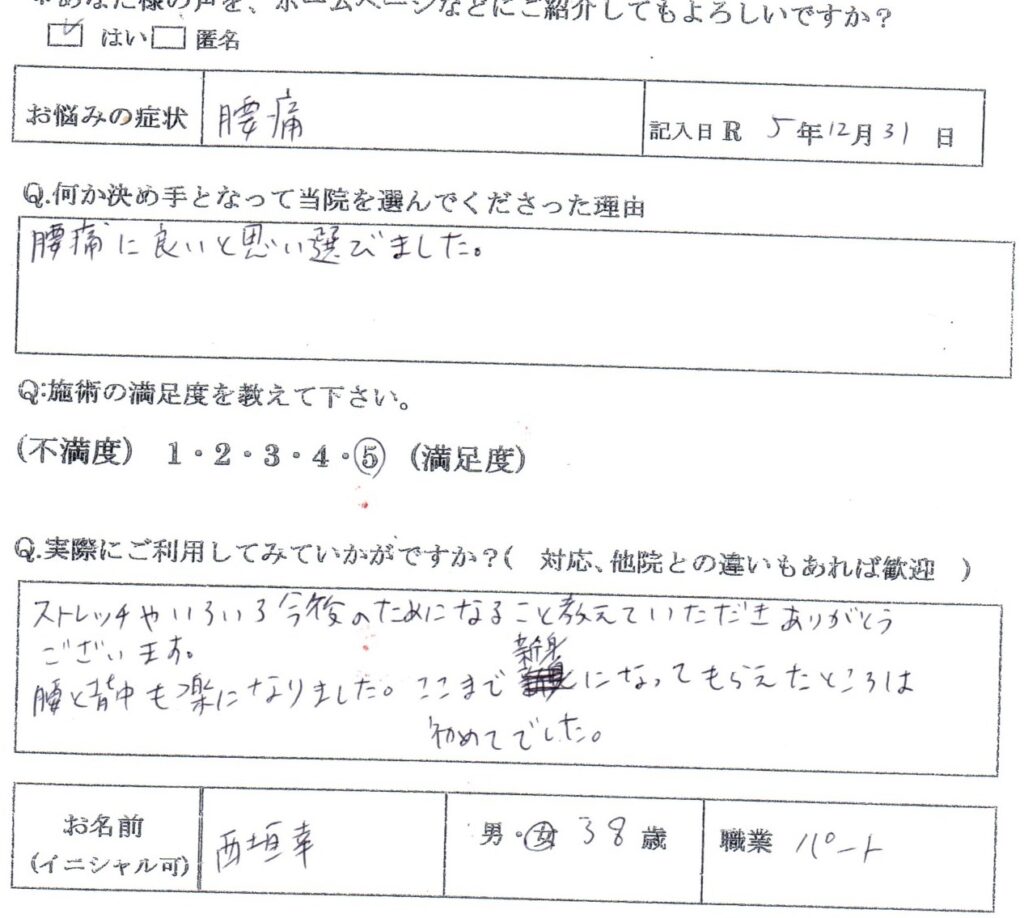 *あなた様の声を、ホームページなどにご紹介してもよろしいですか?
はい 匿名
お悩みの症状 腰痛 記入日 R 5年12月31日
Q.何か決め手となって当院を選んでくださった理由
腰痛に良いと思い選びました。
Q:施術の満足度を教えて下さい。
(不満度) 1・2・3・4・5 (満足度)
Q.実際にご利用してみていかがですか?( 対応、他院との違いもあれば歓迎 )
ストレッチやいろいろ今後のためになること教えていただきありがとう
ございます。
腰と背中も楽になりました。ここまで親身になってもらえたところは
初めてでした。
お名前 (イニシャル可) 西垣幸 男・女 38歳 職業 パート